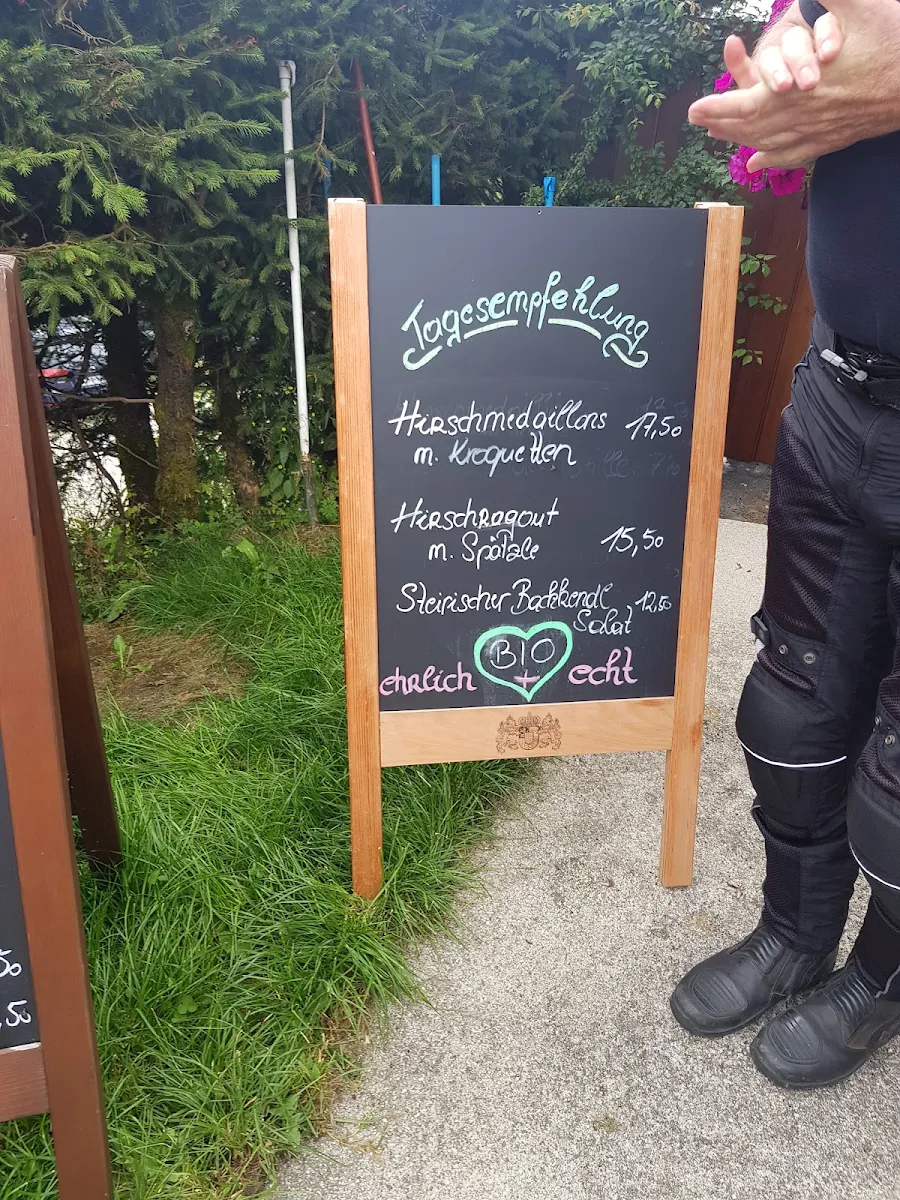 Tagesempfehlung
Hirschmedaillons 17,50
m. Kroquetten
Hirschragout
m. Spätzle 15,50
Steirischer Backhendl 12,50
Salat
BIO
ehrlich + echt
50
,50